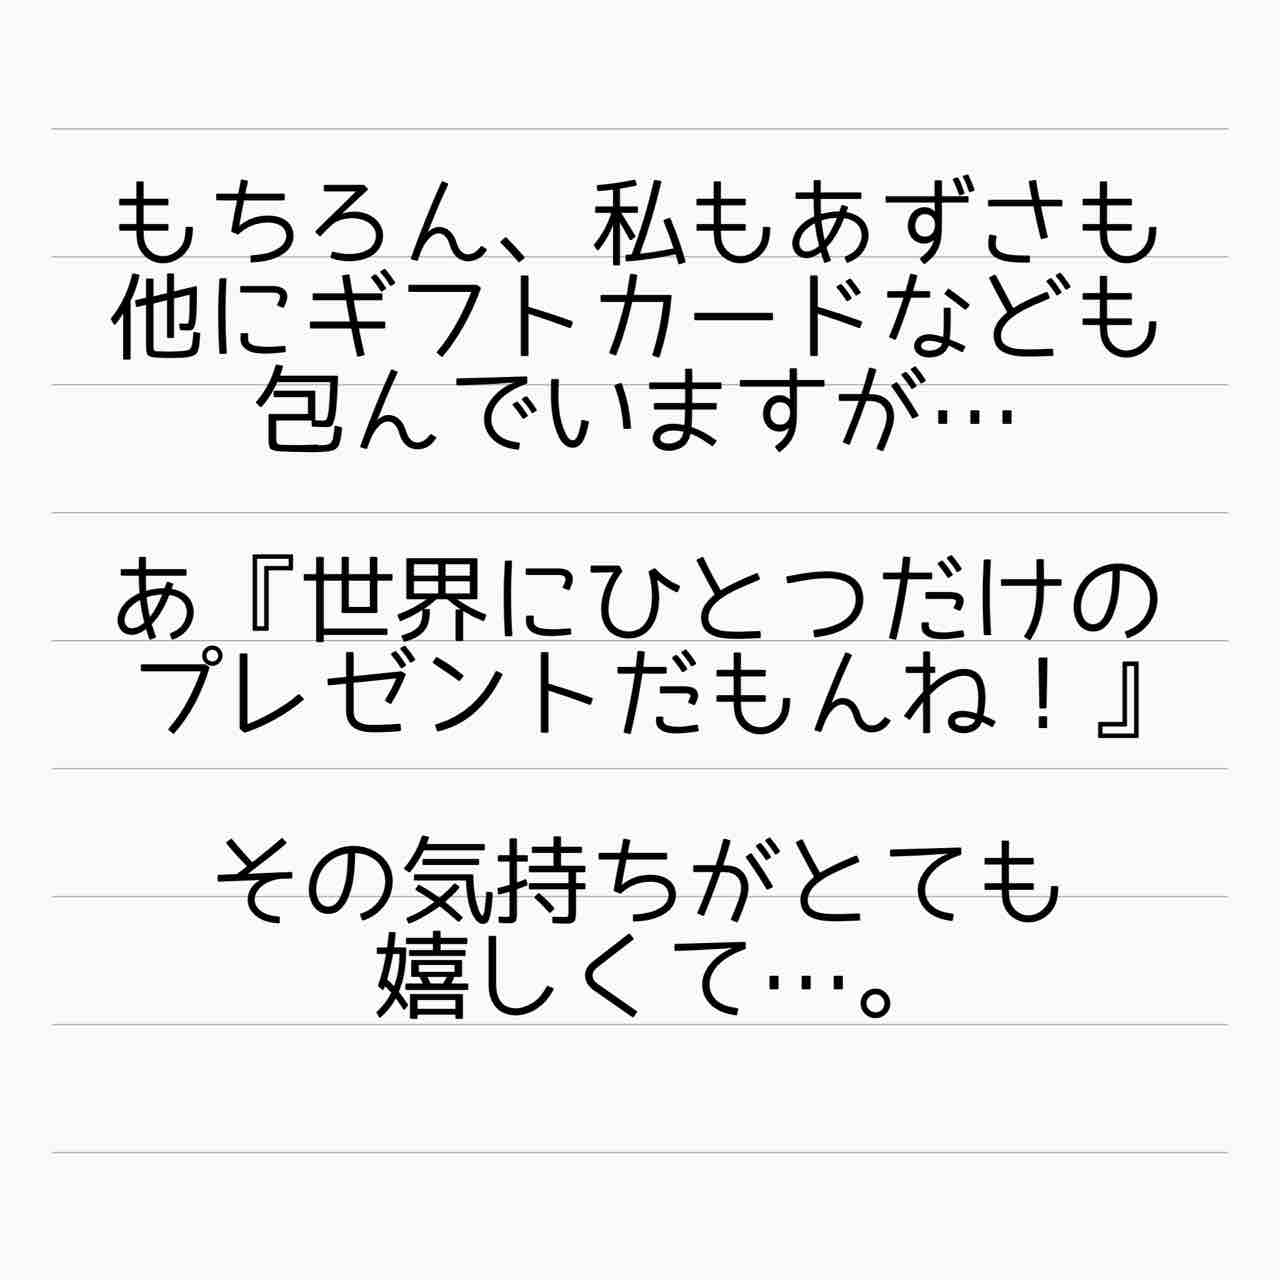 もちろん、私もあずさも
他にギフトカードなども
包んでいますが…
あ『世界にひとつだけの
プレゼントだもんね！』
その気持ちがとても
嬉しくて…。